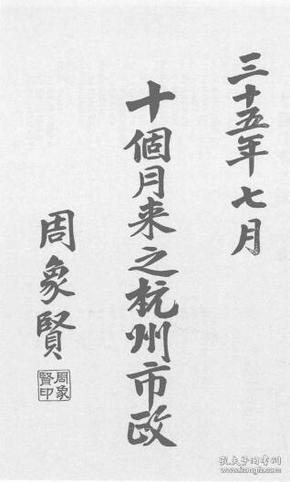 三十五年七月
十個月来之杭州市政
周象賢
周象賢印
孔夫子旧书网